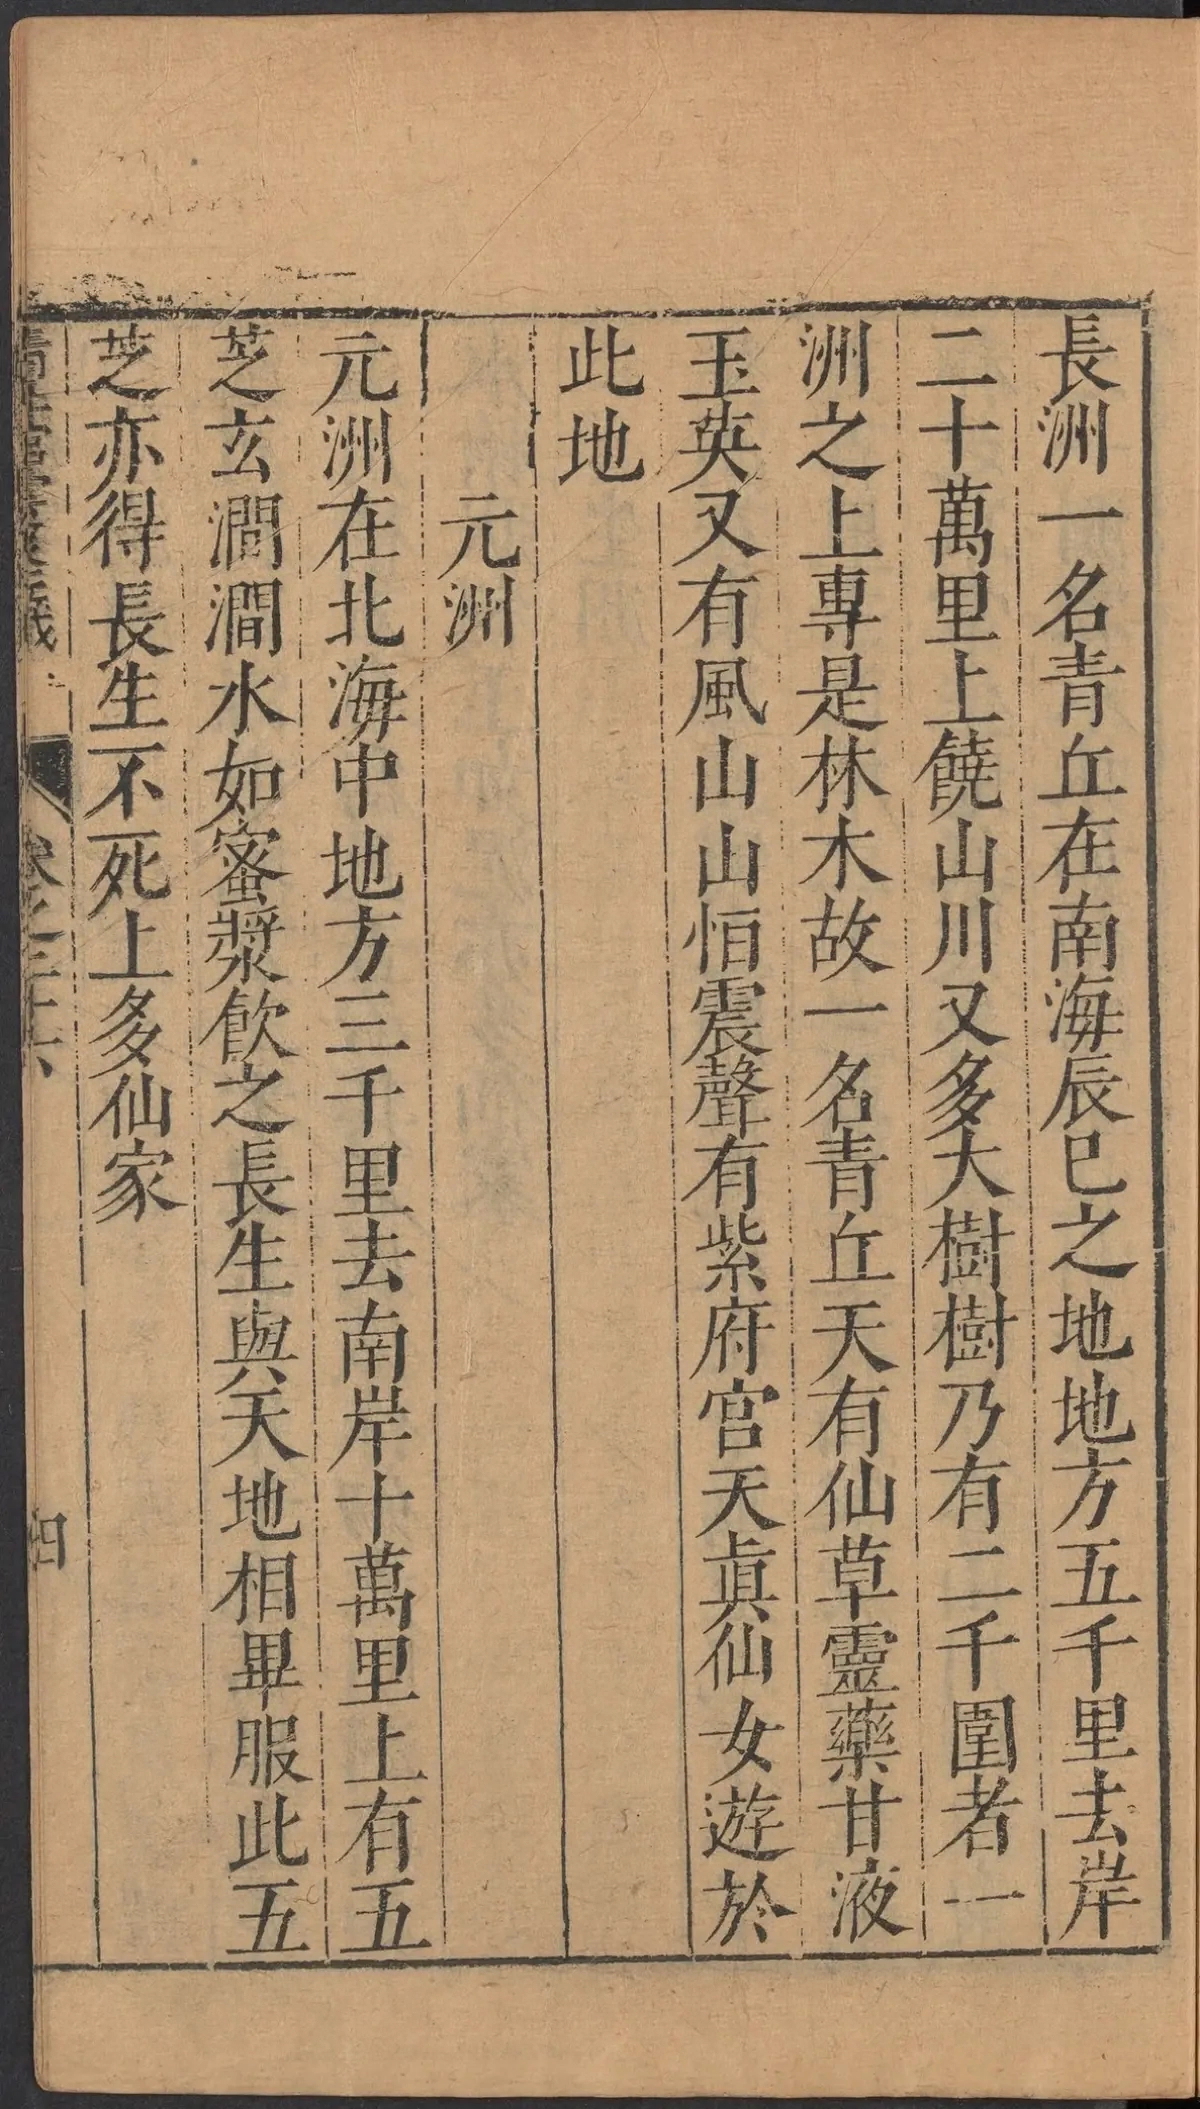 長洲一名青丘在南海辰巳之地地方五千里去岸
二十萬里上饒山川又多大樹樹乃有二千圍者一
洲之上專是林木故一名青丘天有仙草靈藥甘液
玉英又有風山山恒震聲有紫府宮天眞仙女遊於
此地
元洲
元洲在北海中地方三千里去南岸十萬里上有五
芝玄澗澗水如蜜漿飲之長生與天地相畢服此五
芝亦得長生不死上多仙家
卷之二十六
四